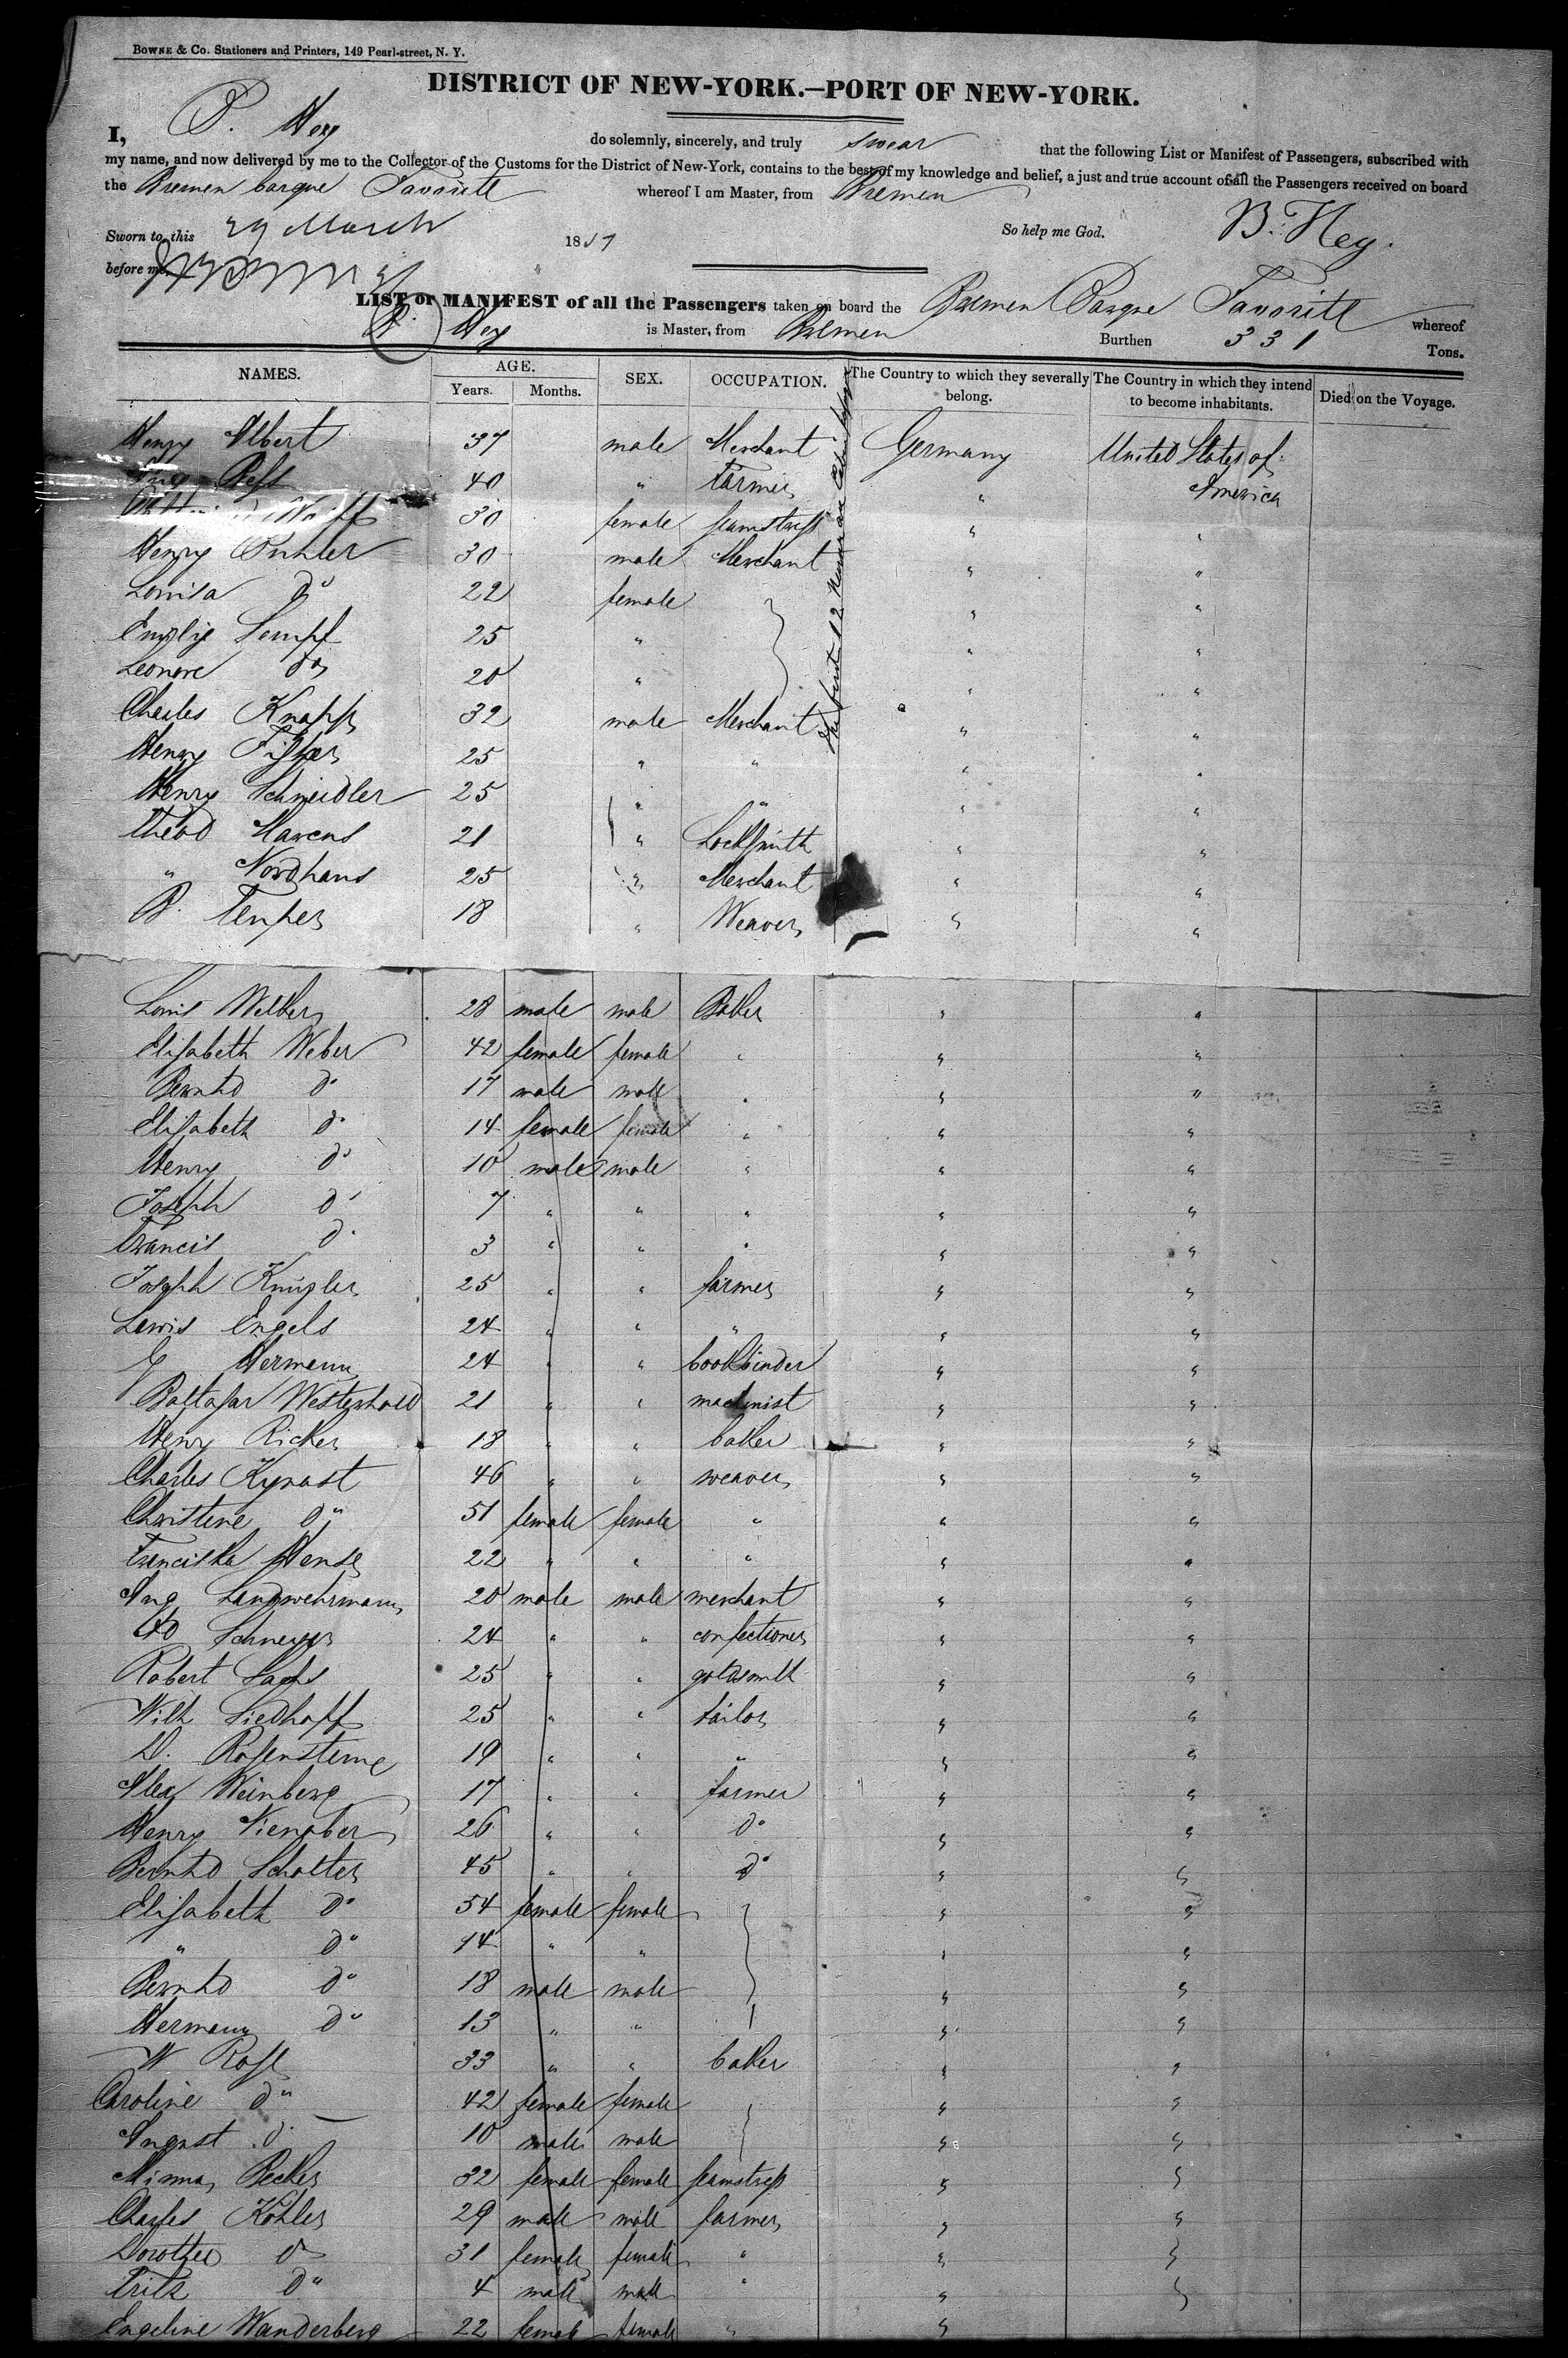 BOWNE & Co. Stationers and Printers, 149 Pearl-street, N. Y.
DISTRICT OF NEW-YORK.—PORT OF NEW-YORK.
I, B. Hey do solemnly, sincerely, and truly swear that the following List or Manifest of Passengers, subscribed with
my name, and now delivered by me to the Collector of the Customs for the District of New-York, contains to the best of my knowledge and belief, a just and true account of all the Passengers received on board
the Bremen barque Favorite whereof I am Master, from Bremen
Sworn to, this 29 March 1851 So help me God. B. Hey.
before me,
LIST or MANIFEST of all the Passengers taken on board the Bremen Barque Favorite whereof
B. Hey is Master, from Bremen Burthen 331 Tons.
NAMES. AGE. SEX. OCCUPATION. The Country to which they severally belong. The Country in which they intend to become inhabitants. Died on the Voyage.
Years. Months.
Henry Albert 37 male Merchant Germany United States of
40 " Farmer " America
30 female seamstress " "
Henry 30 male Merchant " "
Louisa do 22 female " "
Emilie 25 " " "
Leonore do 20 " " "
Charles Knapp 32 male Merchant " "
Henry 25 " " " "
Henry Schneidler 25 " " " "
Theod Marcus 21 " Locksmith " "
" Nordhaus 25 " Merchant " "
B. 18 " Weaver " "
Louis Welker 28 male male Baker " "
Elisabeth Weber 42 female female " " "
Bernhd do 17 male male " " "
Elisabeth do 14 female female " " "
Henry do 10 male male " " "
Joseph do 7 " " " " "
Francis do 3 " " " " "
Joseph 25 " " farmer " "
Lewis Engels 24 " " " " "
Hermann 24 " " bookbinder " "
Baltasar Westerhold 21 " " machinist " "
Henry Ricker 18 " " baker " "
Charles Kynast 46 " " weaver " "
Christine do 51 female female " " "
Franciska 22 " " " " "
Aug Landwehrmann 20 male male merchant " "
24 " " confectioner " "
Robert Sachs 25 " " goldsmith " "
Wilh Siedhoff 25 " " tailor " "
D. Rosensterne 19 " " " " "
Alex Weinberg 17 " " farmer " "
Henry Nienaber 26 " " do " "
Bernhd Scholter 45 " " do " "
Elisabeth do 54 female female " "
" do 14 " " " "
Bernhd do 18 male male " "
Hermann do 13 " " " "
W Rose 33 " " baker " "
Caroline do 42 female female " "
August do 10 male male " "
Minna Becker 32 female female seamstress " "
Charles Köhler 29 male male farmer " "
Dorothee do 31 female female " " "
Fritz do 4 male male " " "
Engeline Wanderberg 22 female female " "